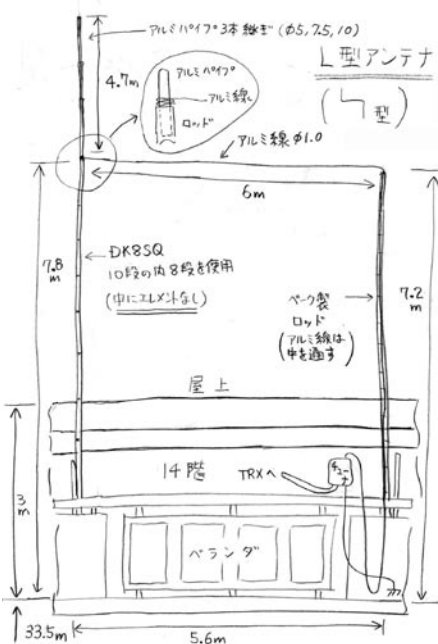 アルミパイプ3本継ぎ (φ5, 7.5, 10)
L型アンテナ
(ㄣ型)
4.7m
アルミパイプ
アルミ線
ロッド
アルミ線φ1.0
6m
7.8
m
DK8SQ
10段の内8段を使用
(中にエレメントなし)
7.2
m
ロッド
(アルミ線は
中を通す)
屋上
14階
TRXへ
チューナ
3
m
ベランダ
33.5m
5.6m